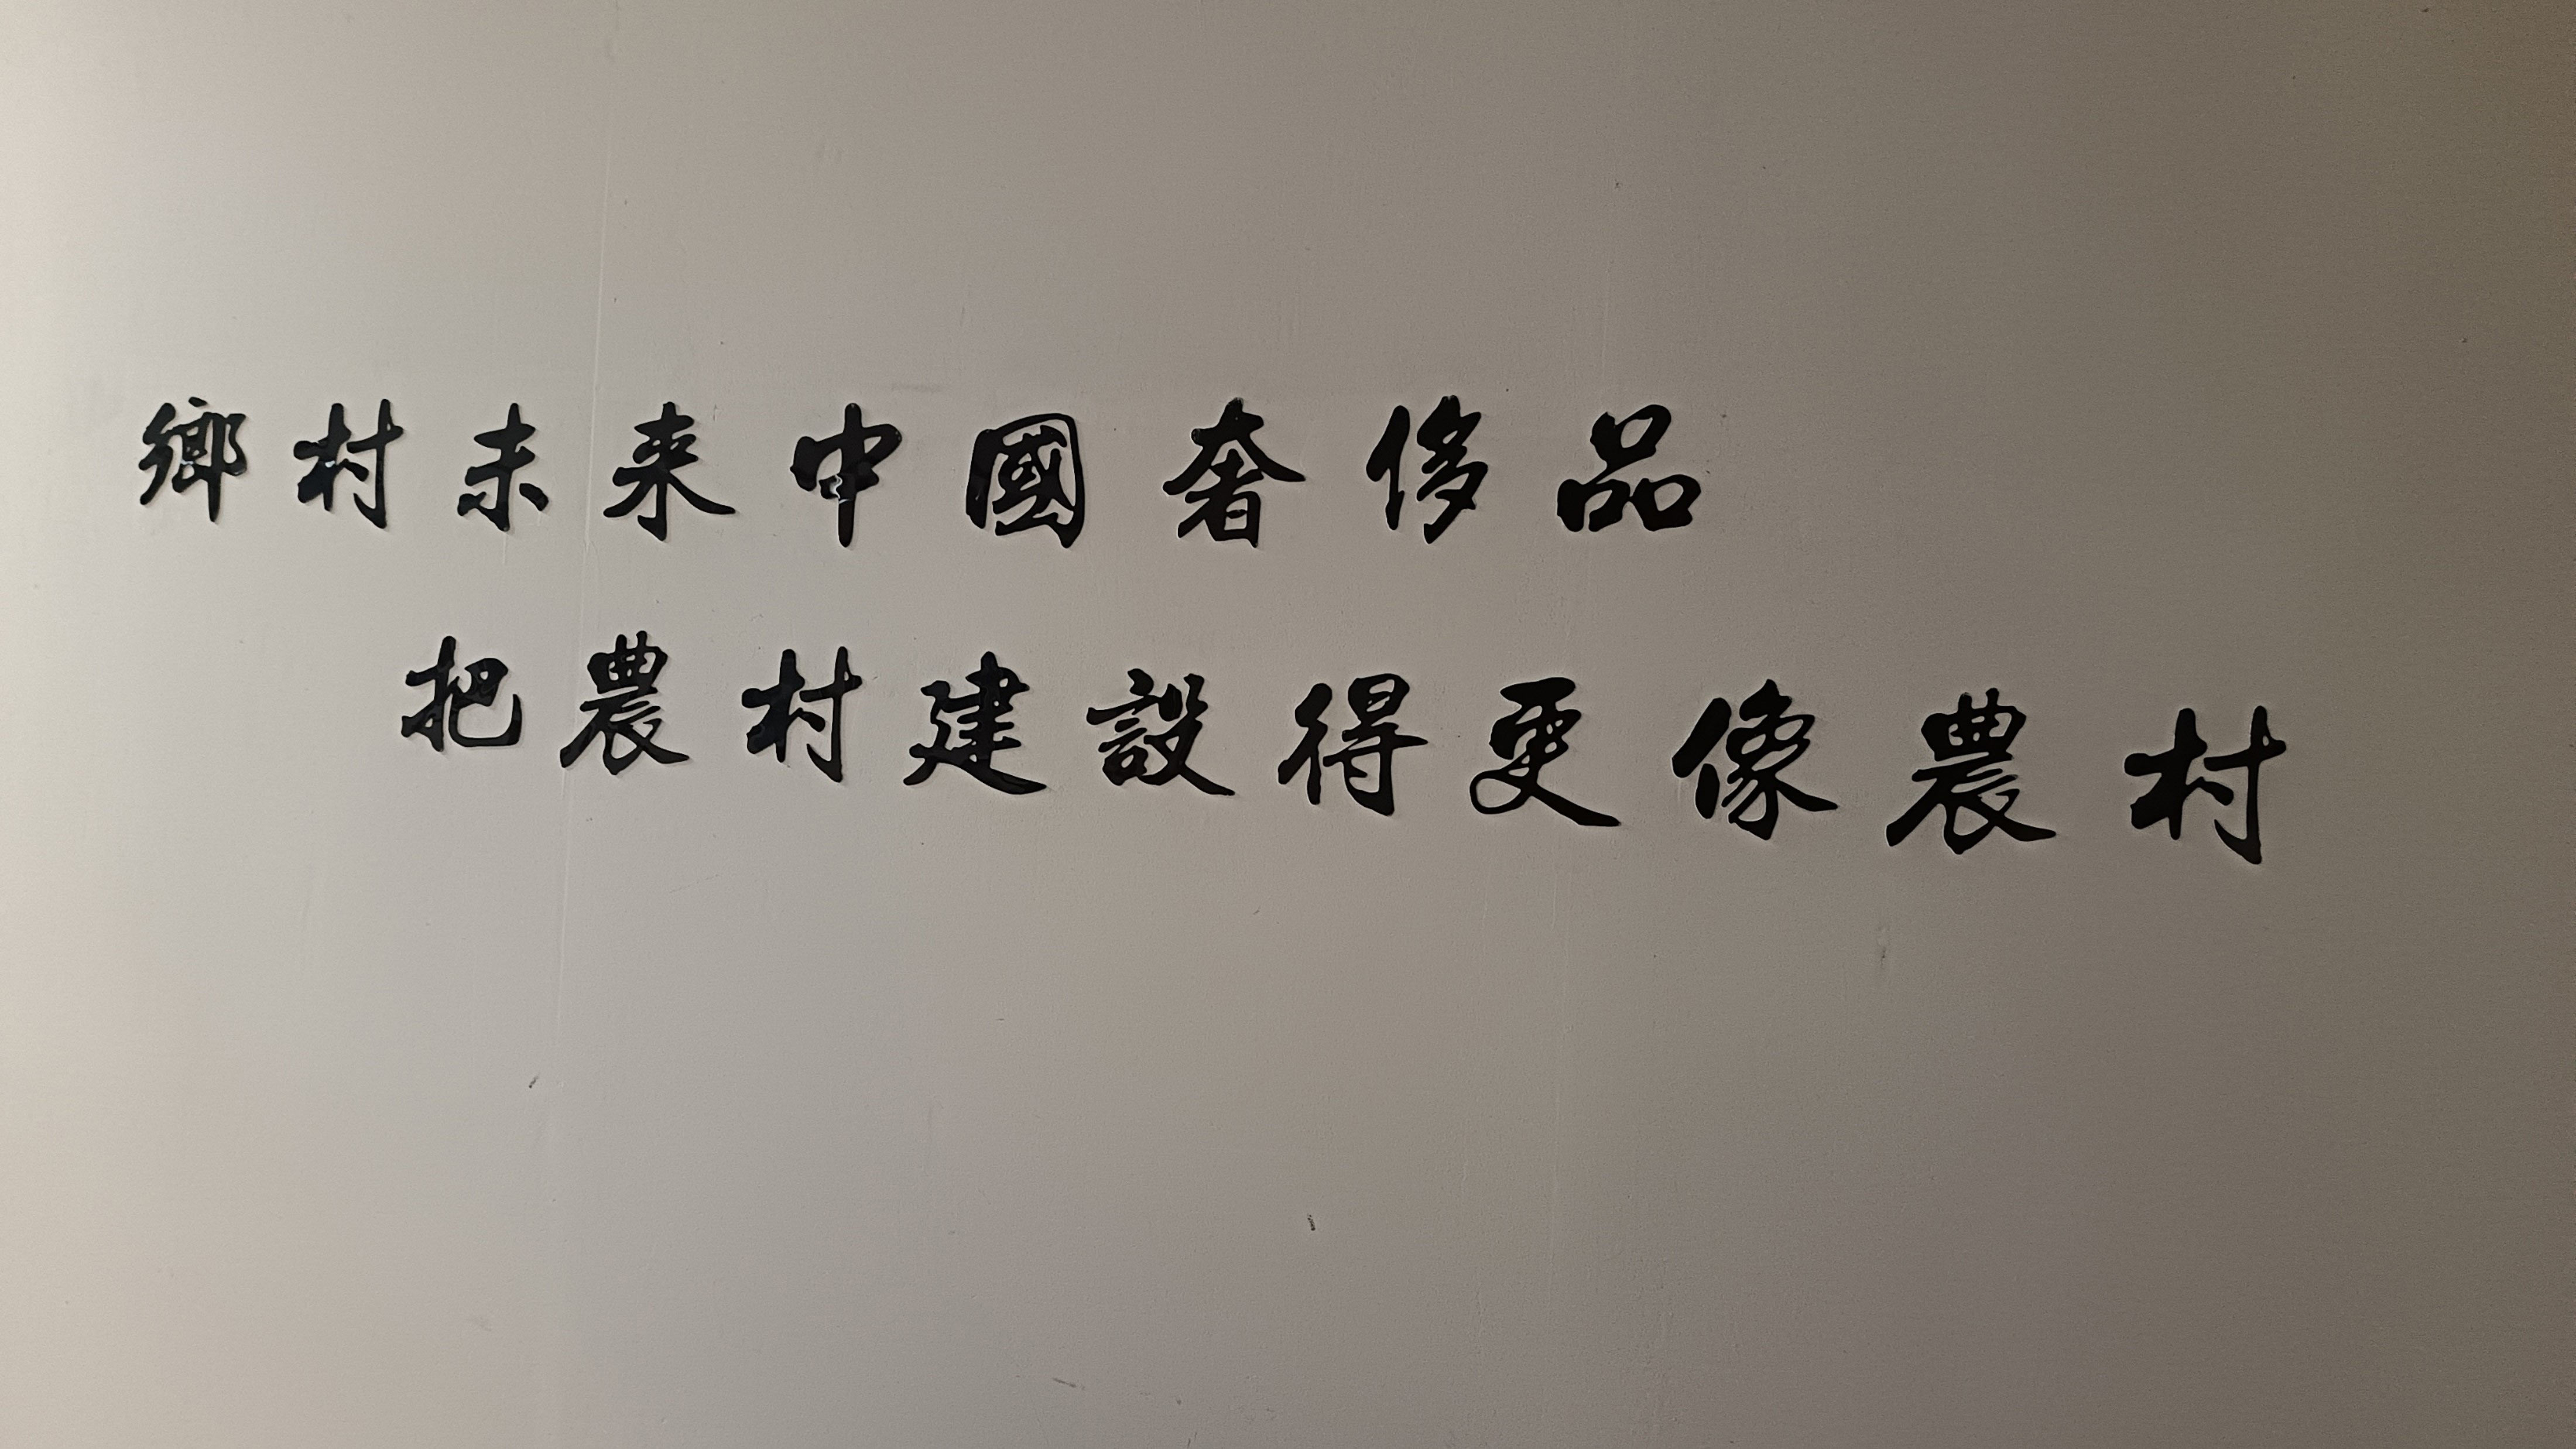 鄉村未来中國奢侈品
把農村建設得更像農村